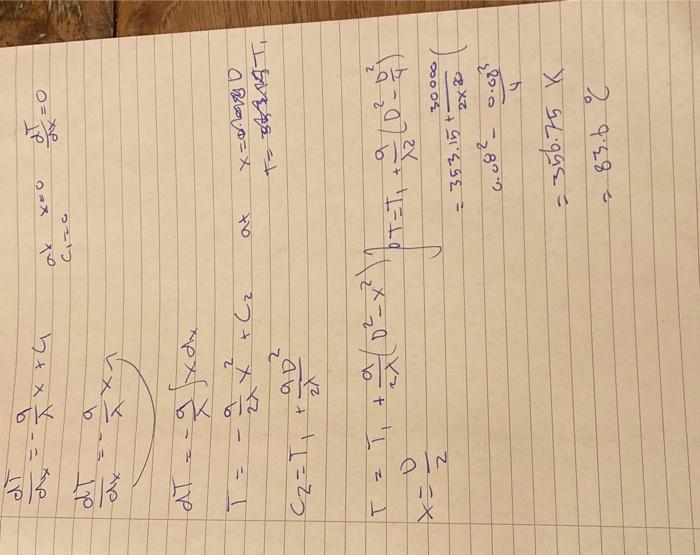 dT/dx = - q/λ x + C1    at x=0 dT/dx = 0
C1 = 0
dT/dx = - q/λ x
dT = - q/λ ∫ x dx
T = - q/2λ x² + C2    at x = D
T = T1
C2 = T1 + qD²/2λ
T = T1 + q/2λ (D² - x²)
x = D/2
T = T1 + q/λ2 (D² - D²/4)
= 353.15 + 30000/2x20 (
0.08² - 0.08²/4
= 356.75 K
= 83.6 °C